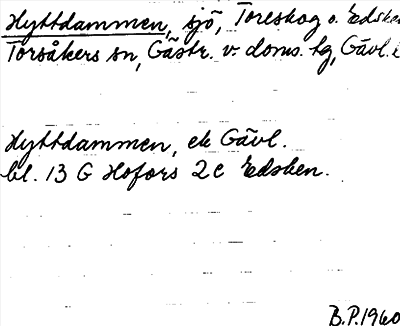 Hyttdammen, sjö, Toreskog o. Edske
Torsåkers sn, Gästr. v. doms. tg, Gävl.
Hyttdammen, ek Gävl.
bl. 13 G Hofors 2c Edsken.
B.P. 1960